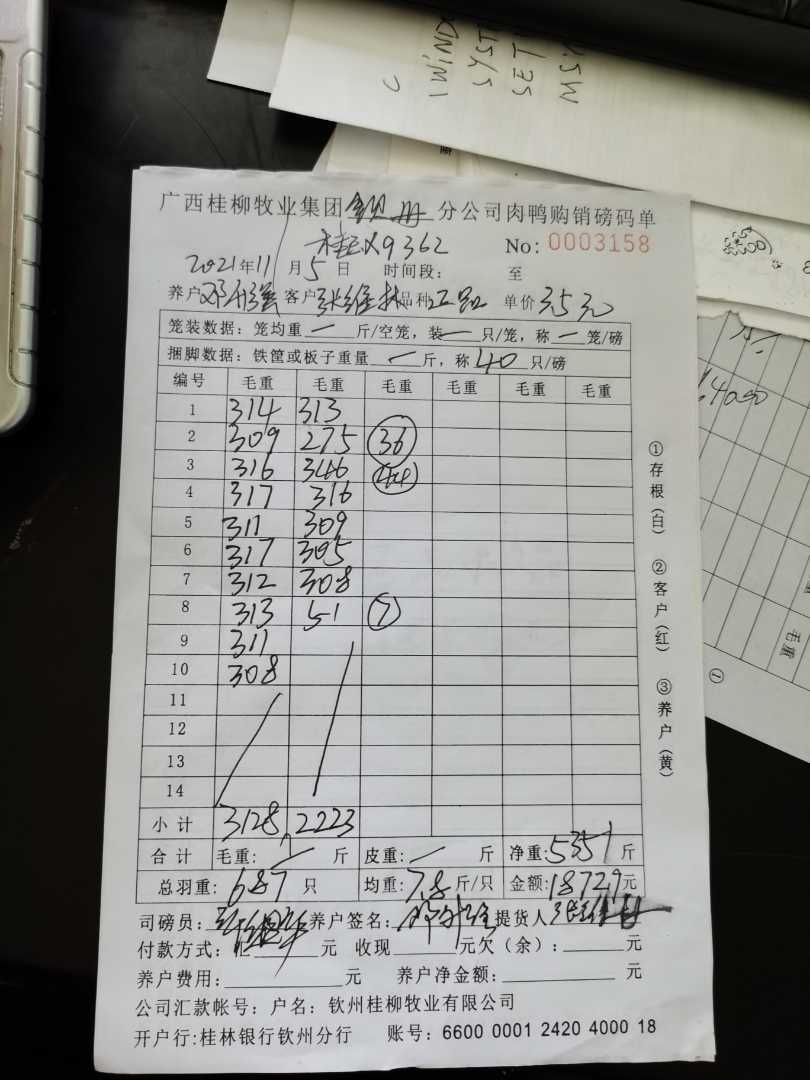 WIND
SYST
广西桂柳牧业集团钦州分公司肉鸭购销磅码单
桂 9362 No: 0003158
2021年11月5日 时间段: 至
养户 客户张维林品种 单价3.5元
笼装数据: 笼均重 一 斤/空笼, 装 一 只/笼, 称 一 笼/磅
捆脚数据: 铁筐或板子重量 一 斤, 称 40 只/磅
编号 毛重 毛重 毛重 毛重 毛重 毛重
1 314 313
2 309 275 36
3 316 346 44
4 317 316
5 311 309
6 317 305
7 312 308
8 313 51 7
9 311
10 308
11
12
13
14
小计 3128 2223
合计 毛重: 一 斤 皮重: 一 斤 净重: 5351 斤
总羽重: 687 只 均重: 7.8 斤/只 金额: 18729元
司磅员: 养户签名: 提货人 张维林
付款方式: 汇 元 收现 元欠(余): 元
养户费用: 元 养户净金额: 元
公司汇款帐号: 户名: 钦州桂柳牧业有限公司
开户行:桂林银行钦州分行 账号: 6600 0001 2420 4000 18
①存根(白) ②客户(红) ③养户(黄)
毛重
①